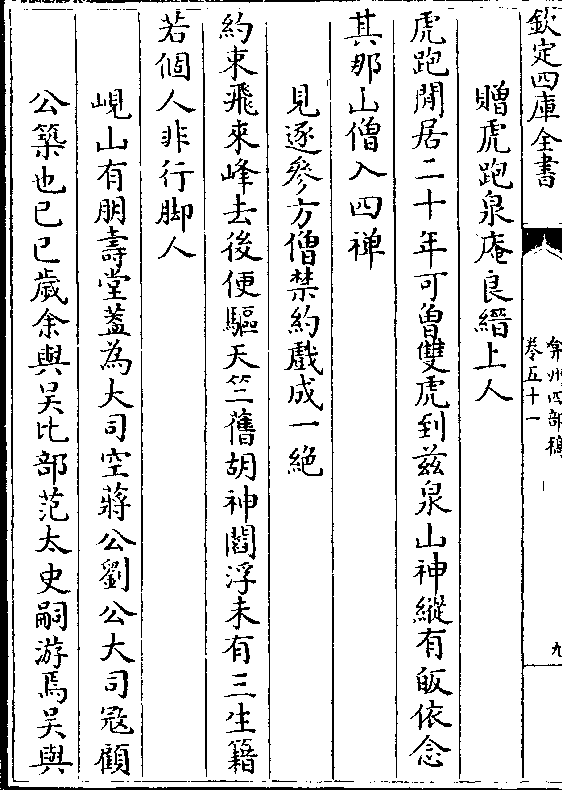 欽定四庫全書
弇州四部稿
卷五十一
九
贈虎跑泉庵良縉上人
虎跑閒居二十年可曾雙虎到兹泉山神縱有皈依念
其那山僧入四禅
見逐參方僧禁約戲成一絶
約束飛來峰去後便驅天竺舊胡神閻浮未有三生籍
若個人非行脚人
峴山有朋壽堂葢為大司空蔣公劉公大司寇顧
公築也己巳歲余與吴比部范太史嗣游焉吴與